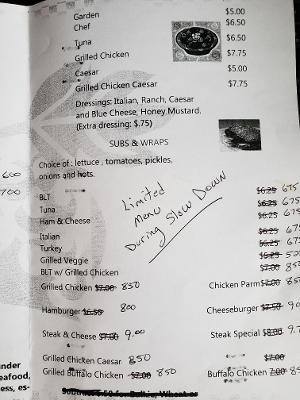 Garden $5.00
Chef $6.50
Tuna $6.50
Grilled Chicken $7.75
Caesar $5.00
Grilled Chicken Caesar $7.75
Dressings: Italian, Ranch, Caesar
and Blue Cheese, Honey Mustard.
(Extra dressing: $.75)
SUBS & WRAPS
Choice of: lettuce, tomatoes, pickles,
onions and hots.
600
700
Limited
Menu
During Slow Down
BLT $6.25 675
Tuna $6.25 675
Ham & Cheese $6.25 675
Italian $6.25
Turkey $6.25
Grilled Veggie
BLT w/ Grilled Chicken
Grilled Chicken $7.00 850 Chicken Parm $7.00 850
Hamburger $6.50 800 Cheeseburger
Steak & Cheese $7.50 9.00 Steak Special
Grilled Chicken Caesar 850 $7.00
Grilled Buffalo Chicken $7.00 850 Buffalo Chicken 850
under
eafood,
ess, es-